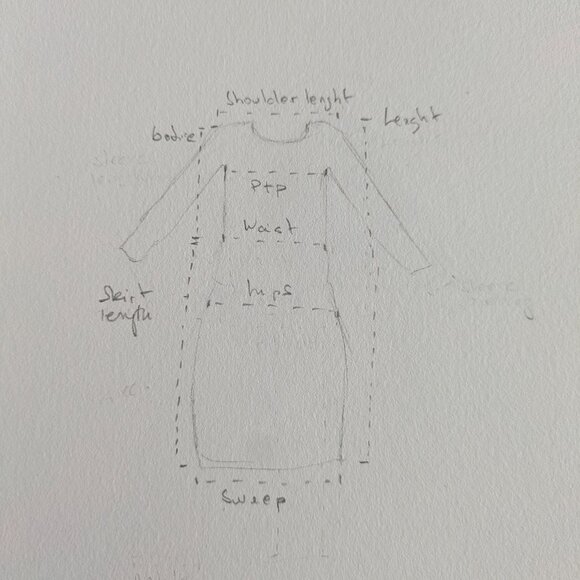 Shoulder lenght
bodice
Lenght
Ptp
Waist
hips
Skirt
length
Sweep